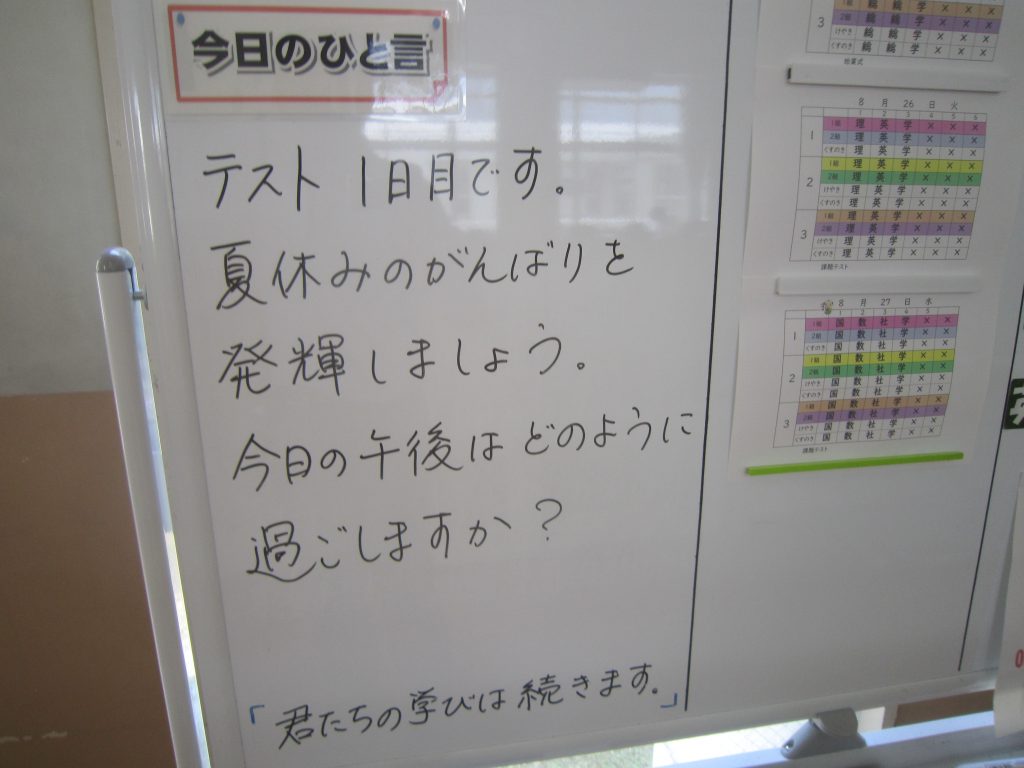 今日のひと言
テスト 1日目です。
夏休みのがんばりを
発輝しましょう。
今日の午後はどのように
過ごしますか？
「君たちの学びは続きます。」
3
2組 総 総 学 × × ×
けやき 総 総 学 × × ×
くすのき 総 総 学 × × ×
始業式
8 月 26 日 火
1 2 3 4 5 6
1 1組 理 英 学 × × ×
2組 理 英 学 × × ×
くすのき 理 英 学 × × ×
2 1組 理 英 学 × × ×
2組 理 英 学 × × ×
けやき 理 英 学 × × ×
くすのき 理 英 学 × × ×
3 1組 理 英 学 × × ×
2組 理 英 学 × × ×
けやき 理 英 学 × × ×
くすのき 理 英 学 × × ×
課題テスト
8 月 27 日 水
1 2 3 4 5
1 1組 国 数 社 学 × ×
2組 国 数 社 学 × ×
くすのき 国 数 社 学 × ×
2 1組 国 数 社 学 × ×
2組 国 数 社 学 × ×
けやき 国 数 社 学 × ×
くすのき 国 数 社 学 × ×
3 1組 国 数 社 学 × ×
2組 国 数 社 学 × ×
けやき 国 数 社 学 × ×
くすのき 国 数 社 学 × ×
課題テスト